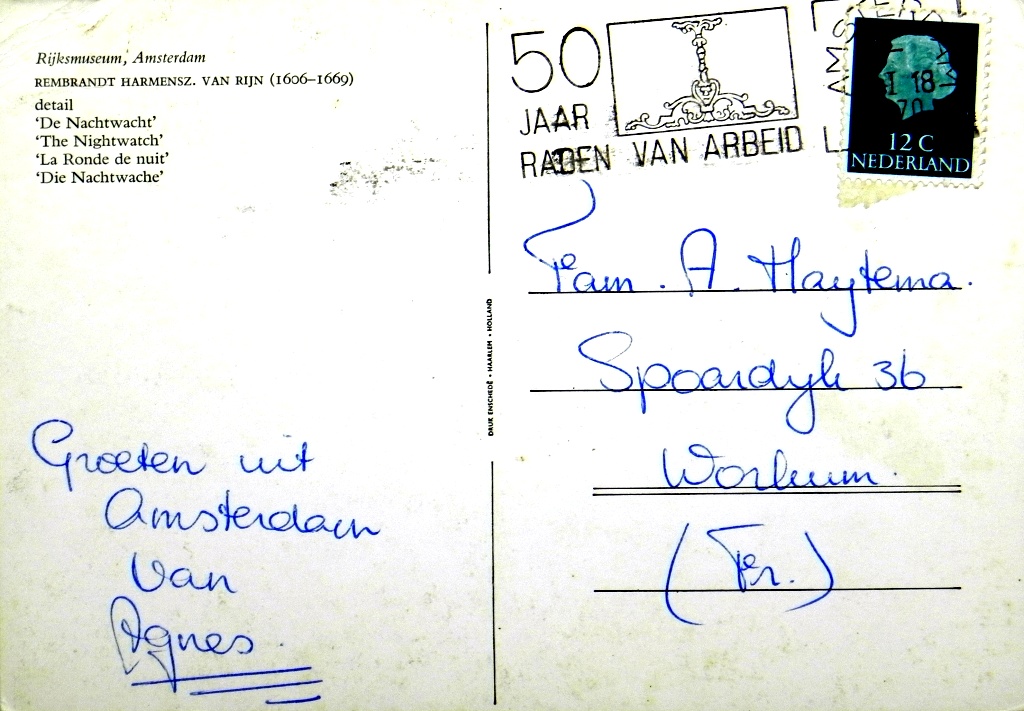 Rijksmuseum, Amsterdam
REMBRANDT HARMENSZ. VAN RIJN (1606–1669)
detail
'De Nachtwacht'
'The Nightwatch'
'La Ronde de nuit'
'Die Nachtwache'
Groeten uit
Amsterdam
van
Agnes.
DRUK ENSCHEDÉ • HAARLEM • HOLLAND
50
JAAR
RADEN VAN ARBEID
AMSTERDAM
18
70
12 C
NEDERLAND
Fam. A. Haytema.
Spoardyk 36
Workum.
(Fr.)